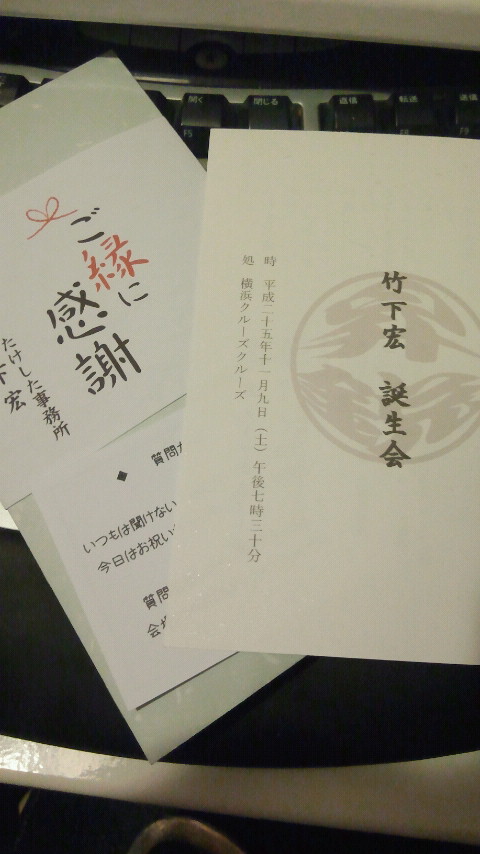 開く
F5
閉じる
F6
返信
F7
転送
F8
送信
ご縁に
感謝
たけした事務所
下 宏
◆ 質問
いつもは聞けない
今日はお祝い
質問
会
竹下宏 誕生会
時 平成二十五年十一月九日(土)午後七時三十分
処 横浜クルーズクルーズ